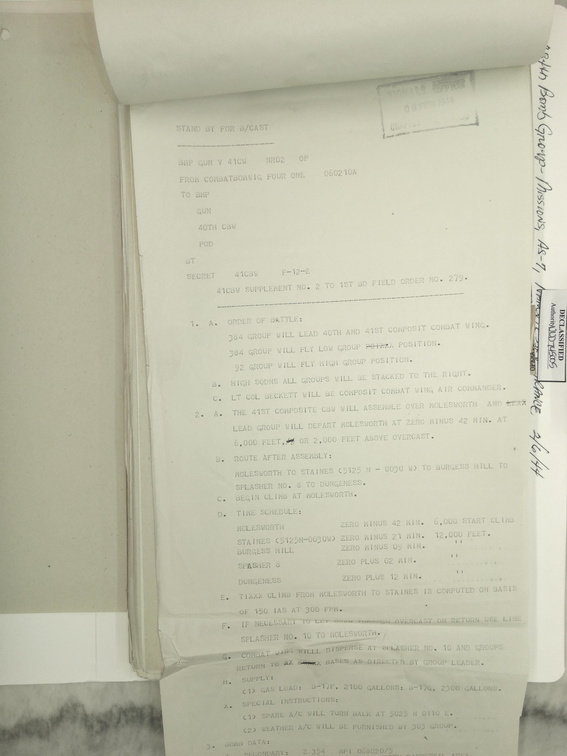 STAND BY FOR
GNP GQN V 41CW NR02 OP
FROM COMBATBOMWIG FOUR ONE 060210A
TO GNP
GQN
40TH CBW
POD
BT
SECRET 41CBW F-12-E
41CBW SUPPLEMENT NO. 2 TO 1ST BD FIELD ORDER NO. 275.
1. A. ORDER OF BATTLE:
384 GROUP WILL LEAD 40TH AND 41ST COMPOSIT COMBAT WING.
384 GROUP WILL FLY LOW GROUP POSITION.
92 GROUP WILL FLY HIGH GROUP POSITION.
B. HIGH SQDNS ALL GROUPS WILL BE STACKED TO THE RIGHT.
C. LT COL BECKETT WILL BE COMPOSIT COMBAT WING AIR COMMANDER.
2. A. THE 41ST COMPOSITE CBW WILL ASSEMBLE OVER MOLESWORTH AND
LEAD GROUP WILL DEPART MOLESWORTH AT ZERO MINUS 42 MIN. AT
6,000 FEET, OR 2,000 FEET ABOVE OVERCAST.
B. ROUTE AFTER ASSEMBLY:
MOLESWORTH TO STAINES (5125 N - 0030 W) TO BURGESS HILL TO
SPLASHER NO. 6 TO DUNGENESS.
C. BEGIN CLIMB AT MOLESWORTH.
D. TIME SCHEDULE:
MOLESWORTH ZERO MINUS 42 MIN. 6,000 START CLIMB
STAINES (5125N-0030W) ZERO MINUS 21 MIN. 12,000 FEET.
BURGESS HILL ZERO MINUS 05 MIN. "
SPLASHER 6 ZERO PLUS 02 MIN. "
DUNGENESS ZERO PLUS 12 MIN. "
E. CLIMB FROM MOLESWORTH TO STAINES IS COMPUTED ON BASIS
OF 150 IAS AT 300 FPM.
F. IF NECESSARY TO THROUGH OVERCAST ON RETURN USE LINE
SPLASHER NO. 10 TO MOLESWORTH.
G. COMBAT WING WILL DISPERSE AT SPLASHER NO. 10 AND GROUPS
RETURN TO BASES AS DIRECTED BY GROUP LEADER.
H. SUPPLY:
(1) GAS LOAD: B-17F, 2100 GALLONS; B-17G, 2300 GALLONS.
X. SPECIAL INSTRUCTIONS:
(1) SPARE A/C WILL TURN BACK AT 5025 N 0110 E.
(2) WEATHER A/C WILL BE FURNISHED BY 303 GROUP.
3. BOMB DATA:
Bomb Group - Missions, AS-7, FRANCE 2/6/44
DECLASSIFIED
Authority